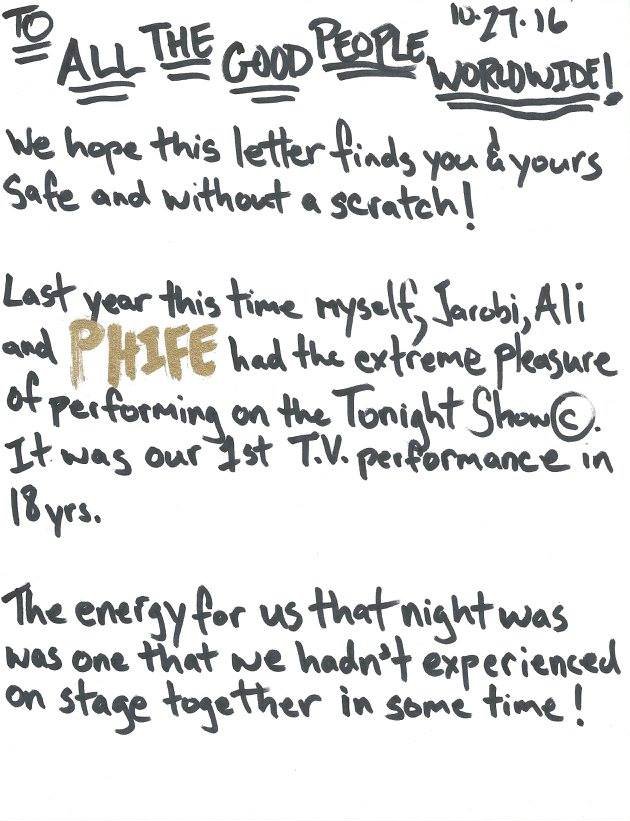 TO ALL THE GOOD PEOPLE WORLDWIDE! 10.27.16
We hope this letter finds you & yours
safe and without a scratch!
Last year this time myself, Jarobi, Ali
and PHIFE had the extreme pleasure
of performing on the Tonight Show©.
It was our 1st T.V. performance in
18yrs.
The energy for us that night was
was one that we hadn't experienced
on stage together in some time!